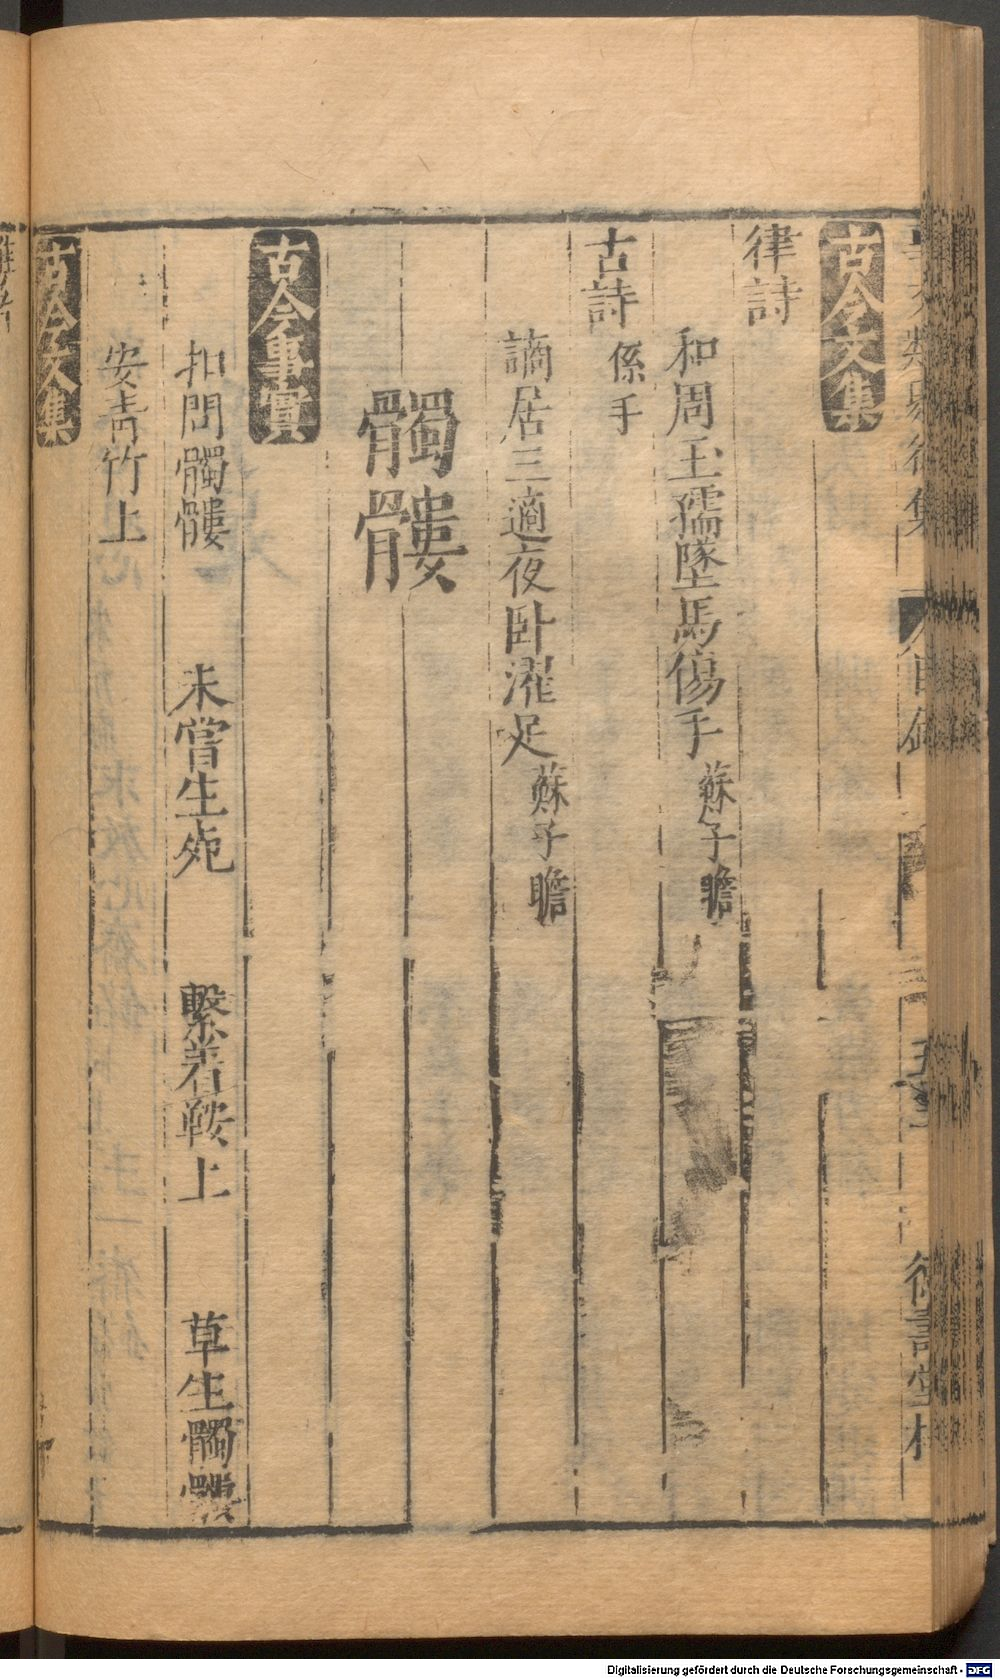 事文類聚後集 目錄 五 德壽堂梓
古今文集
律詩
和周王孺墜馬傷手 蘇子瞻
古詩 係手
謫居三適夜臥濯足 蘇子瞻
髑髏
古今事實
扣問髑髏 未嘗生死 繫着鞍上 草生髑髏
安青竹上
古今文集
Digitalisierung gefördert durch die Deutsche Forschungsgemeinschaft - DFG